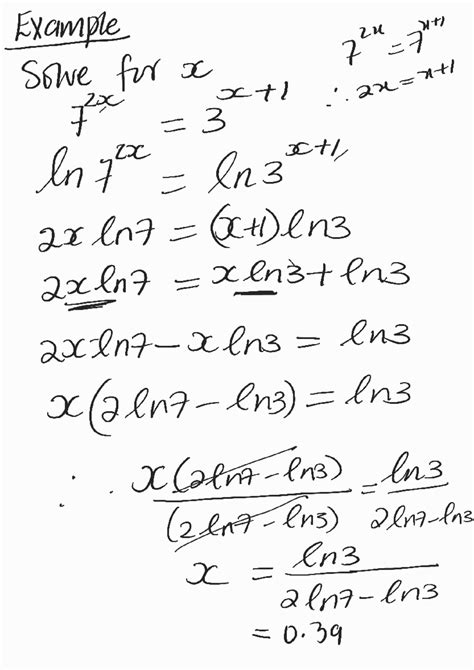 Example
7^{2x} = 7^{x+1}
∴ 2x = x+1
Solve for x
7^{2x} = 3^{x+1}
ln 7^{2x} = ln 3^{x+1}
2x ln7 = (x+1) ln3
2x ln7 = x ln3 + ln3
2x ln7 - x ln3 = ln3
x(2 ln7 - ln3) = ln3
∴ x(2ln7 - ln3) / (2 ln7 - ln3) = ln3 / 2ln7 - ln3
x = ln3 / 2 ln7 - ln3
= 0.39